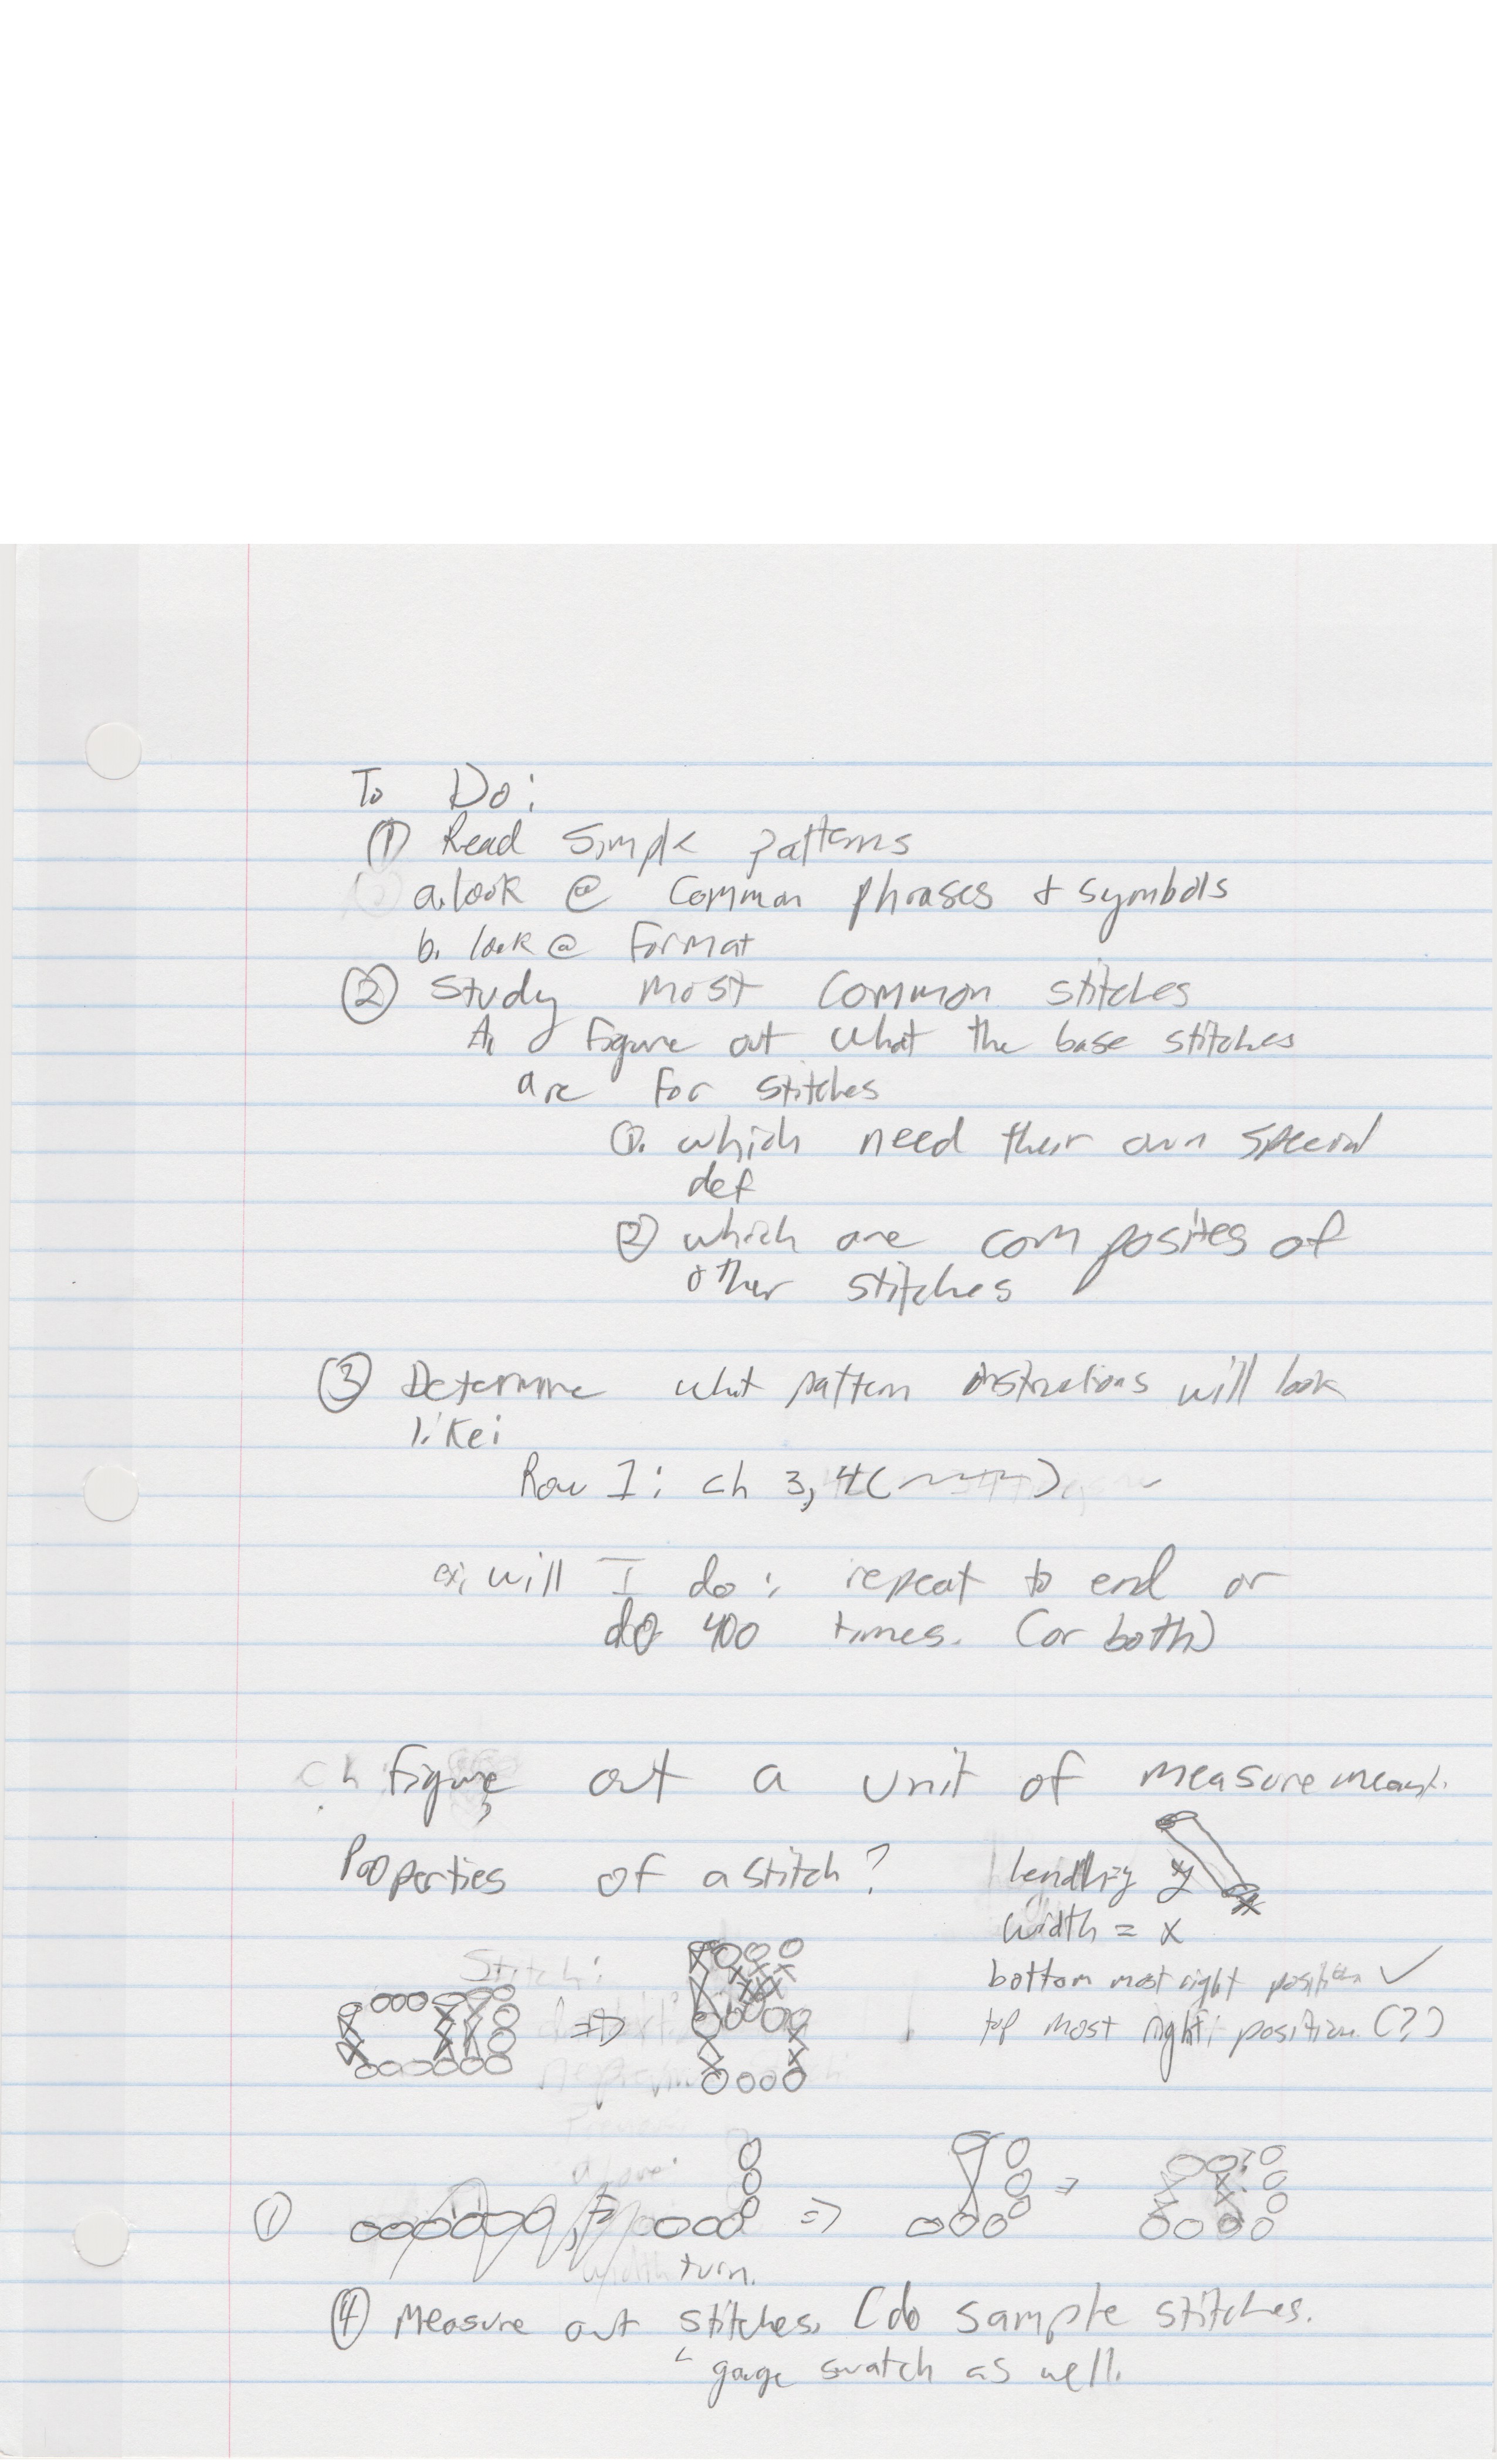 To Do:
① Read simple patterns
a. look @ common phrases & symbols
b. look @ format
② Study most common stitches
A. Figure out what the base stitches
are for stitches
①. which need their own special
def
② which are composites of
other stitches
③ Determine what pattern instructions will look
like:
Row 1: ch 3, 4(
ex. will I do: repeat to end or
do 400 times. (or both)
ch Figure out a unit of measurement.
Properties of a stitch?
length = y
width = x
Stitch:
bottom most right position ✓
top most right position (?)
①
turn.
④ Measure out stitches. (do sample stitches.
gauge swatch as well.